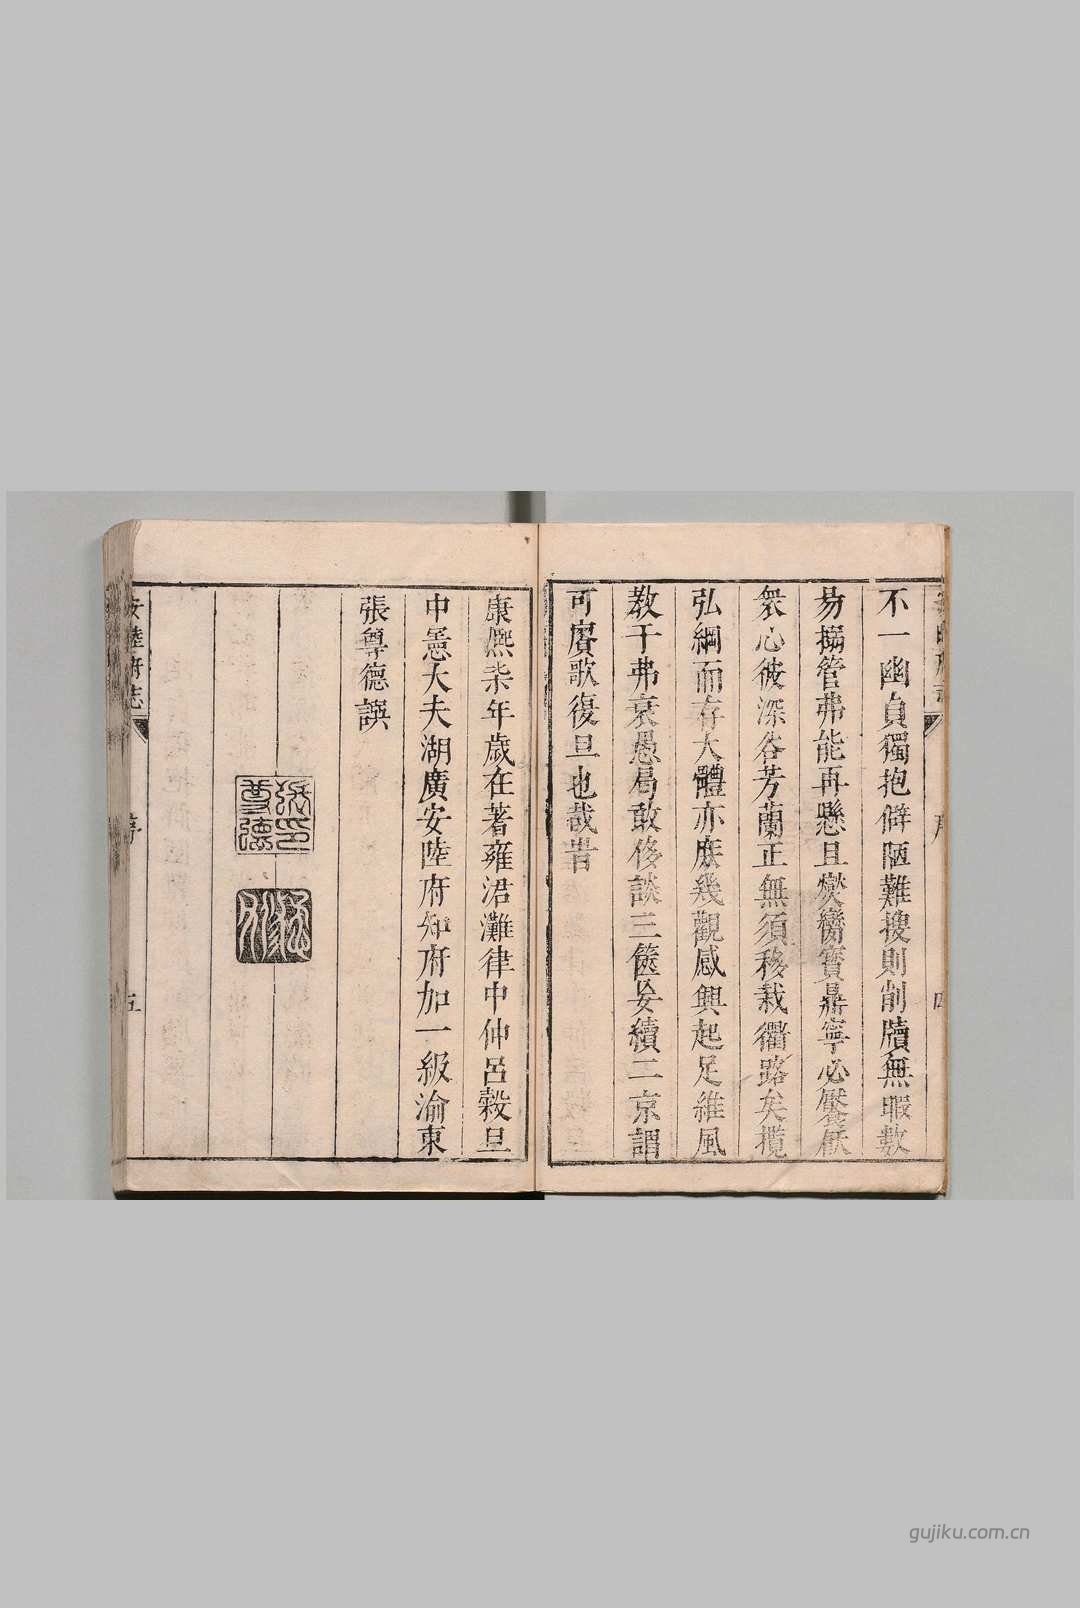 不一幽貞獨抱僻陋難搜則削牘無暇數
易搦管弗能再懸且燹臠寶鼎寧必饜飫
衆心彼深谷芳蘭正無須移栽衢路矣攬
弘綱而存大體亦庶幾觀感興起足維風
教于弗衰愚曷敢侈談三篋妄續二京謂
可賡歌復旦也哉告
康熙柒年歲在著雍涒灘律中仲呂穀旦
中憲大夫湖廣安陸府知府加一級渝東
張尊德譔
張印尊德
安陸府志
序
五
gujiku.com.cn